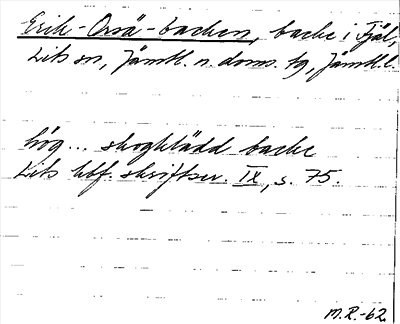 Erik-Orsä-backen, backe i Fjäl,
Lits sn, Jämtl. n. doms. tg, Jämtl. l.
hög... skogklädd backe
Lits hbf. skriftser. IX, s. 75.
M.R.-62.